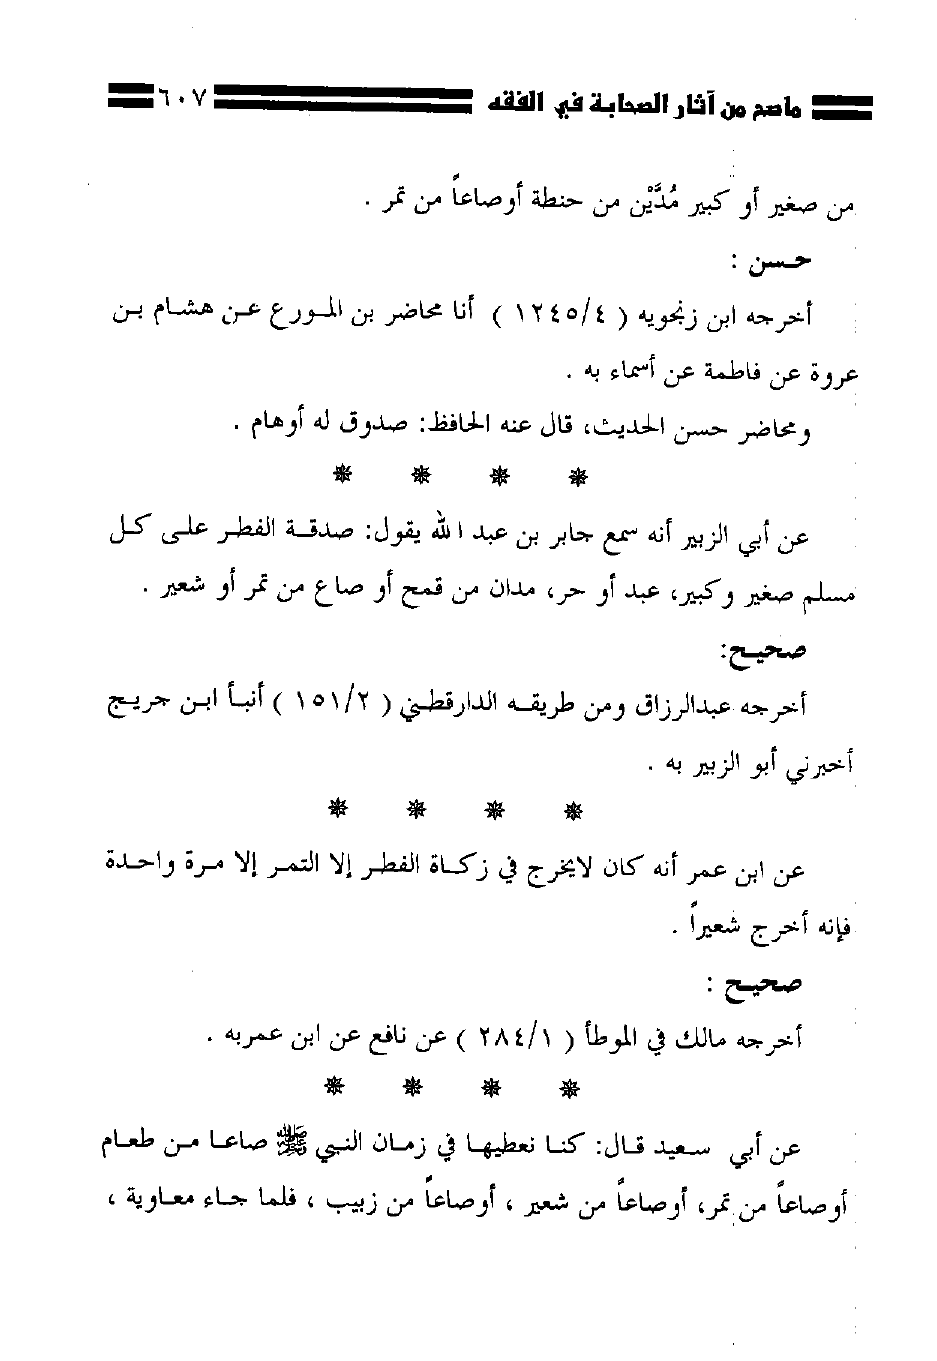 ماصح من آثار الصحابة في الفقه ٦٠٧
من صغير أو كبير مُدَّيْن من حنطة أوصاعاً من تمر .
حسن :
أخرجه ابن زنجويه ( ١٢٤٥/٤ ) أنا محاضر بن المورع عن هشام بن
عروة عن فاطمة عن أسماء به .
ومحاضر حسن الحديث، قال عنه الحافظ: صدوق له أوهام .
* * * *
عن أبي الزبير أنه سمع جابر بن عبد الله يقول: صدقة الفطر على كل
مسلم صغير وكبير، عبد أو حر، مدان من قمح أو صاع من تمر أو شعير .
صحيح:
أخرجه عبدالرزاق ومن طريقه الدارقطني ( ١٥١/٢ ) أنبأ ابن جريج
أخبرني أبو الزبير به .
* * * *
عن ابن عمر أنه كان لايخرج في زكاة الفطر إلا التمر إلا مرة واحدة
فإنه أخرج شعيراً .
صحيح :
أخرجه مالك في الموطأ ( ٢٨٤/١ ) عن نافع عن ابن عمربه .
* * * *
عن أبي سعيد قال: كنا نعطيها في زمان النبي ﷺ صاعا من طعام
أوصاعاً من تمر، أوصاعاً من شعير ، أوصاعاً من زبيب ، فلما جاء معاوية ،